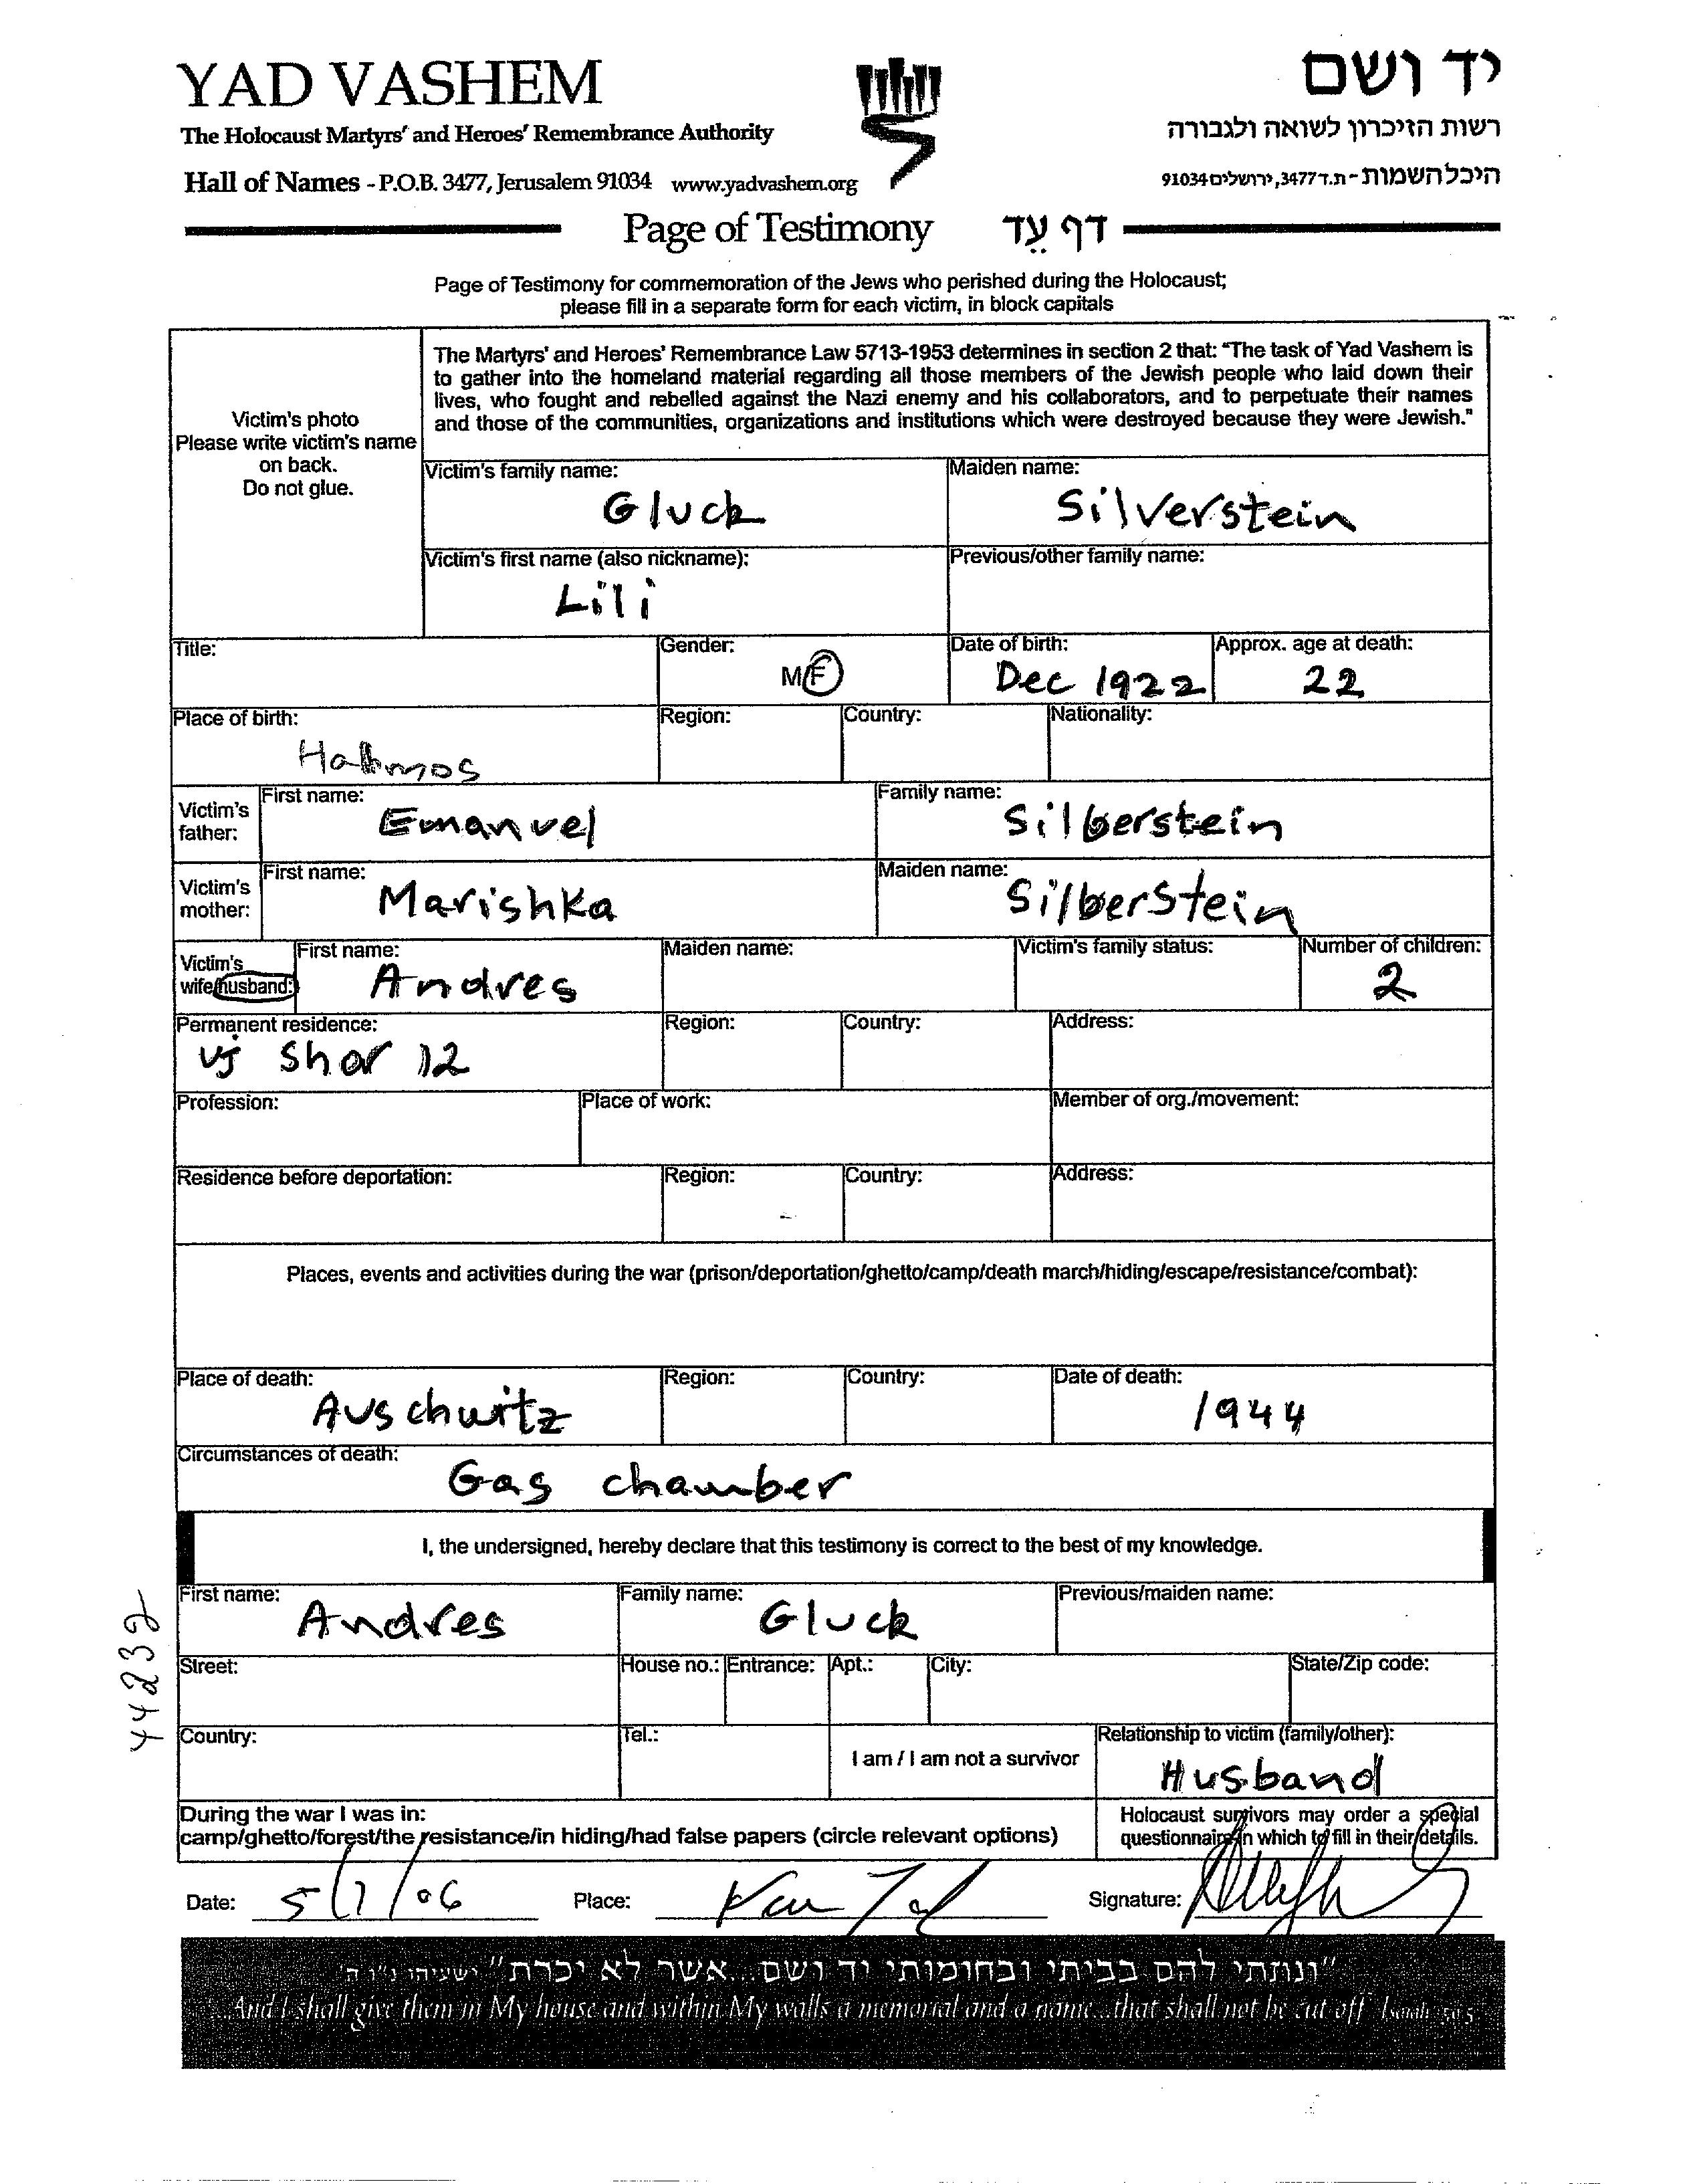 YAD VASHEM
The Holocaust Martyrs' and Heroes' Remembrance Authority
Hall of Names - P.O.B. 3477, Jerusalem 91034 www.yadvashem.org
יד ושם
רשות הזיכרון לשואה ולגבורה
היכל השמות - ת.ד 3477, ירושלים 91034
Page of Testimony דף עֵד
Page of Testimony for commemoration of the Jews who perished during the Holocaust;
please fill in a separate form for each victim, in block capitals
Victim's photo
Please write victim's name
on back.
Do not glue.
The Martyrs' and Heroes' Remembrance Law 5713-1953 determines in section 2 that: "The task of Yad Vashem is
to gather into the homeland material regarding all those members of the Jewish people who laid down their
lives, who fought and rebelled against the Nazi enemy and his collaborators, and to perpetuate their names
and those of the communities, organizations and institutions which were destroyed because they were Jewish."
Victim's family name: Maiden name:
Gluck Silverstein
Victim's first name (also nickname): Previous/other family name:
Lili
Title: Gender: Date of birth: Approx. age at death:
M/F Dec 1922 22
Place of birth: Region: Country: Nationality:
Halmos
Victim's father: First name: Family name:
Emanuel Silberstein
Victim's mother: First name: Maiden name:
Marishka Silberstein
Victim's wife/husband: First name: Maiden name: Victim's family status: Number of children:
Andres 2
Permanent residence: Region: Country: Address:
Uj Shor 12
Profession: Place of work: Member of org./movement:
Residence before deportation: Region: Country: Address:
Places, events and activities during the war (prison/deportation/ghetto/camp/death march/hiding/escape/resistance/combat):
Place of death: Region: Country: Date of death:
Auschwitz 1944
Circumstances of death:
Gas chamber
I, the undersigned, hereby declare that this testimony is correct to the best of my knowledge.
First name: Family name: Previous/maiden name:
Andres Gluck
44232
Street: House no.: Entrance: Apt.: City: State/Zip code:
Country: Tel.: I am / I am not a survivor Relationship to victim (family/other):
Husband
During the war I was in:
camp/ghetto/forest/the resistance/in hiding/had false papers (circle relevant options)
Holocaust survivors may order a special
questionnaire in which to fill in their details.
Date: 5/7/06 Place: Signature:
"ונתתי להם בביתי ובחומותי יד ושם...אשר לא יכרת" ישעיהו נ"ו ה
...And I shall give them in My house and within My walls a memorial and a name...that shall not be cut off Isaiah 56:5